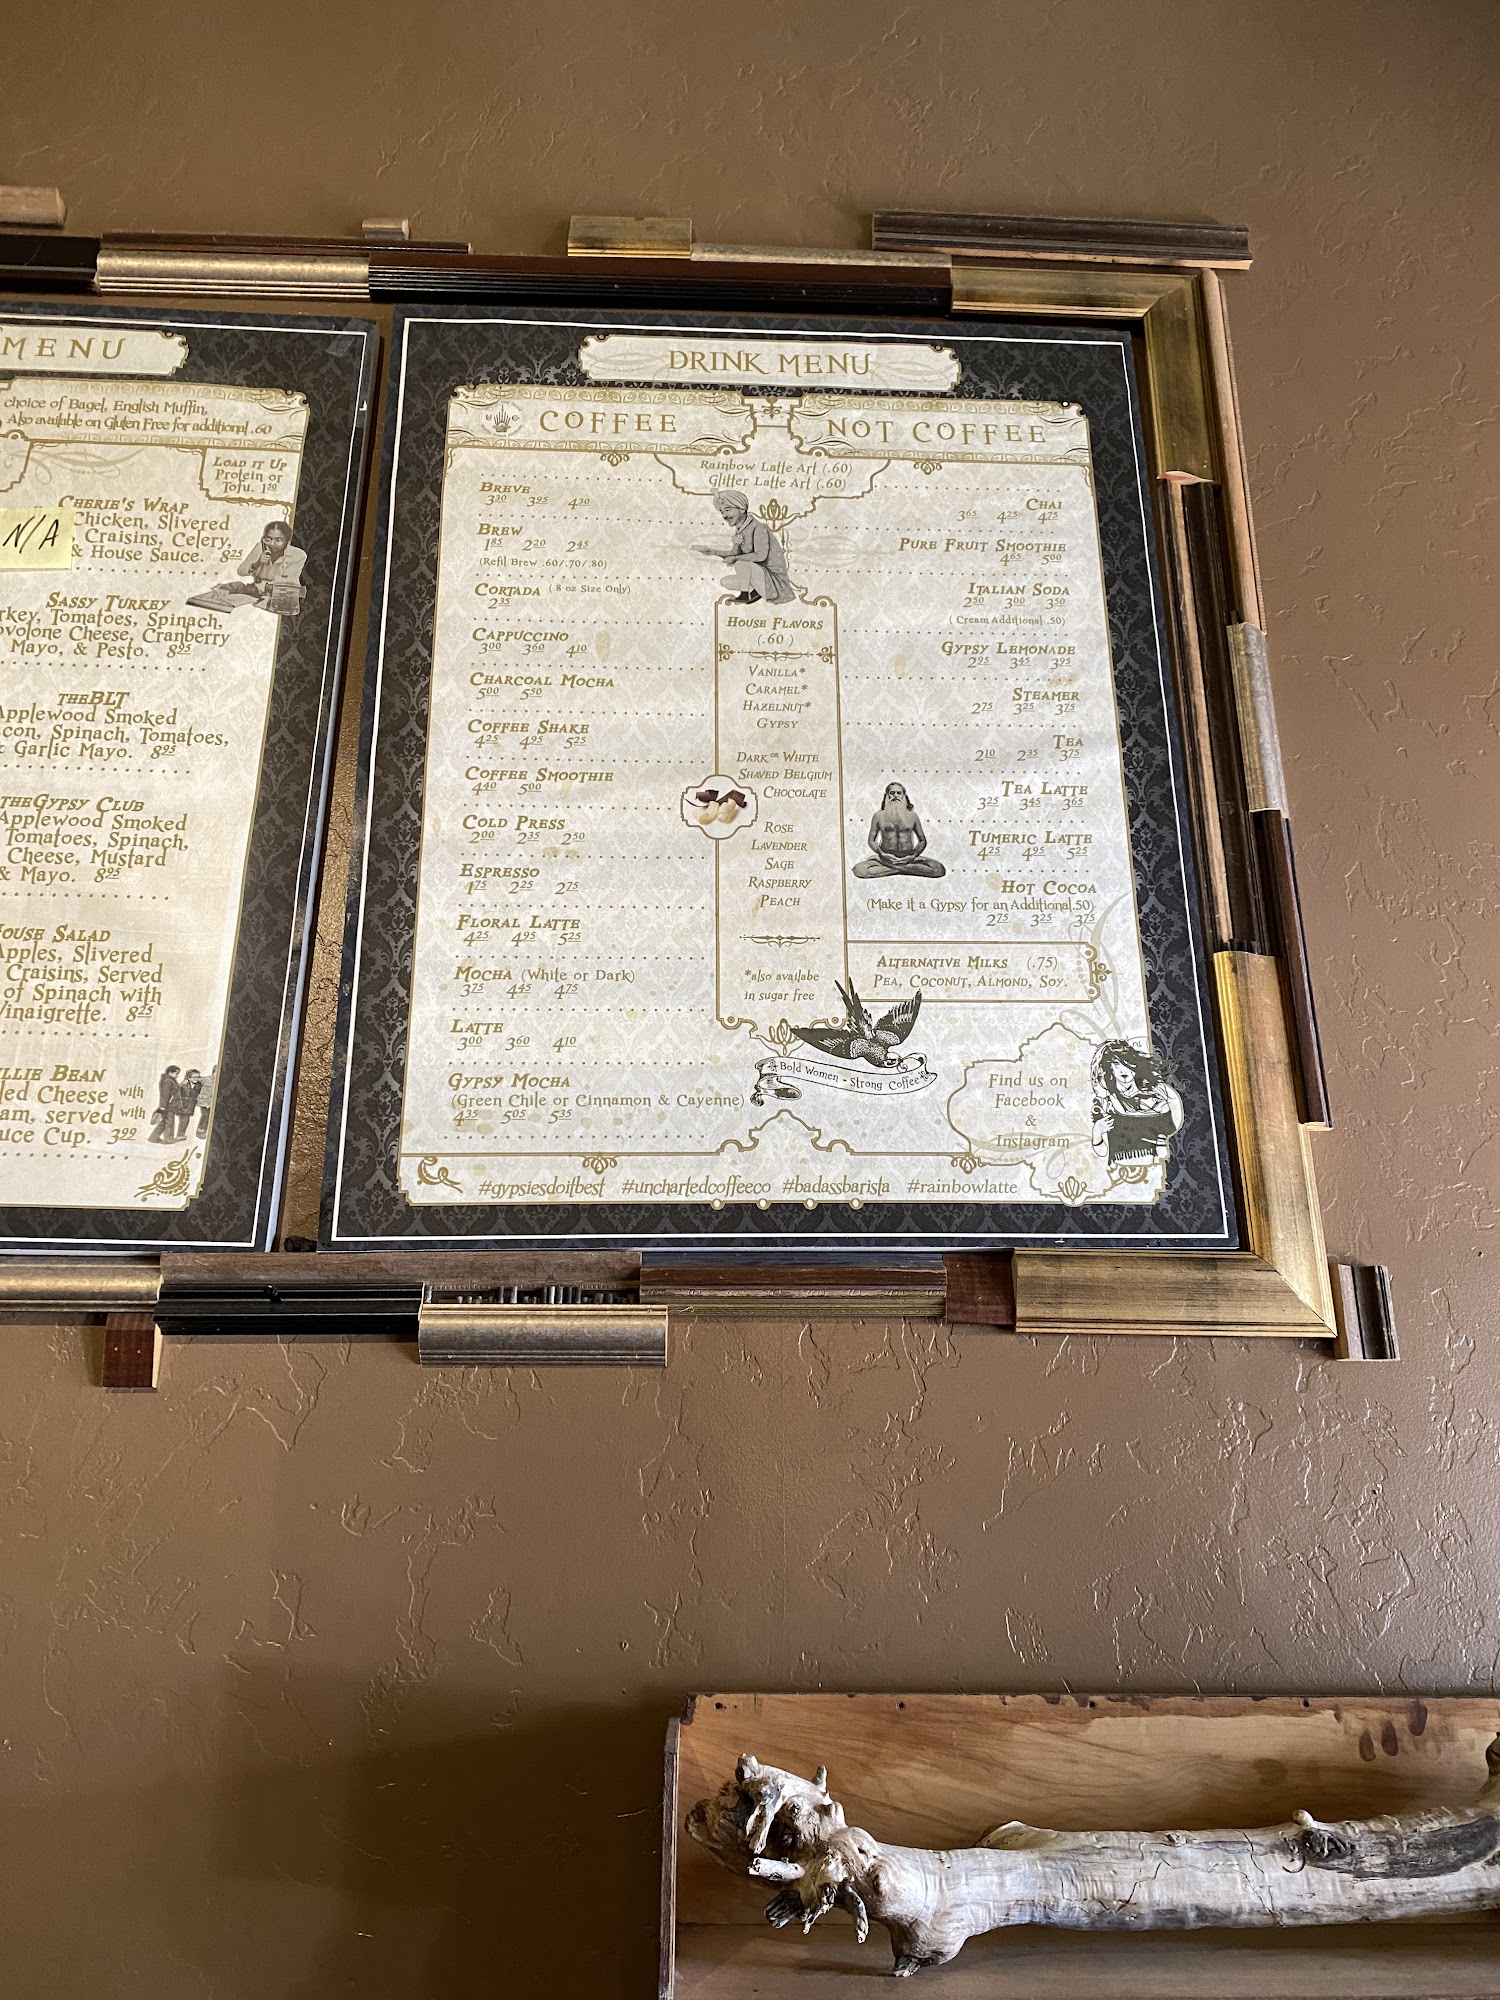 MENU
choice of Bagel, English Muffin,
Also available on Gluten Free for additional .60
LOAD IT UP
Protein or
Tofu. 1.50
CHERIE'S WRAP
N/A
Chicken, Slivered
Craisins, Celery,
& House Sauce. 8.25
SASSY TURKEY
Tomatoes, Spinach,
Cheese, Cranberry
Mayo, & Pesto. 8.95
THE BLT
Applewood Smoked
Spinach, Tomatoes,
& Garlic Mayo. 8.95
THE GYPSY CLUB
Applewood Smoked
Tomatoes, Spinach,
Cheese, Mustard
& Mayo. 8.95
SALAD
Apples, Slivered
Craisins, Served
of Spinach with
8.25
BEAN
Cheese with
served with
Cup. 3.99
DRINK MENU
COFFEE
NOT COFFEE
Rainbow Latte Art (.60)
Glitter Latte Art (.60)
BREVE
3.30 3.95 4.30
BREW
1.85 2.20 2.45
(Refil Brew .60/.70/.80)
CORTADA ( 8 oz Size Only)
2.35
CAPPUCCINO
3.00 3.60 4.10
CHARCOAL MOCHA
5.00 5.50
COFFEE SHAKE
4.25 4.95 5.25
COFFEE SMOOTHIE
4.40 5.00
COLD PRESS
2.00 2.35 2.50
ESPRESSO
1.75 2.25 2.75
FLORAL LATTE
4.25 4.95 5.25
MOCHA (White or Dark)
3.75 4.45 4.75
LATTE
3.00 3.60 4.10
GYPSY MOCHA
(Green Chile or Cinnamon & Cayenne)
4.35 5.05 5.35
HOUSE FLAVORS
(.60 )
VANILLA*
CARAMEL*
HAZELNUT*
GYPSY
DARK OR WHITE
SHAVED BELGIUM
CHOCOLATE
ROSE
LAVENDER
SAGE
RASPBERRY
PEACH
*also availabe
in sugar free
CHAI
3.65 4.25 4.75
PURE FRUIT SMOOTHIE
4.65 5.00
ITALIAN SODA
2.50 3.00 3.50
( Cream Additional .50)
GYPSY LEMONADE
2.95 3.45 3.95
STEAMER
2.75 3.25 3.75
TEA
2.10 2.35 3.75
TEA LATTE
3.25 3.45 3.65
TUMERIC LATTE
4.25 4.95 5.25
HOT COCOA
(Make it a Gypsy for an Additional .50)
2.75 3.25 3.75
ALTERNATIVE MILKS (.75)
PEA, COCONUT, ALMOND, SOY.
Bold Women - Strong Coffee
Find us on
Facebook
&
Instagram
#gypsiesdoitbest #unchartedcoffeeco #badassbarista #rainbowlatte